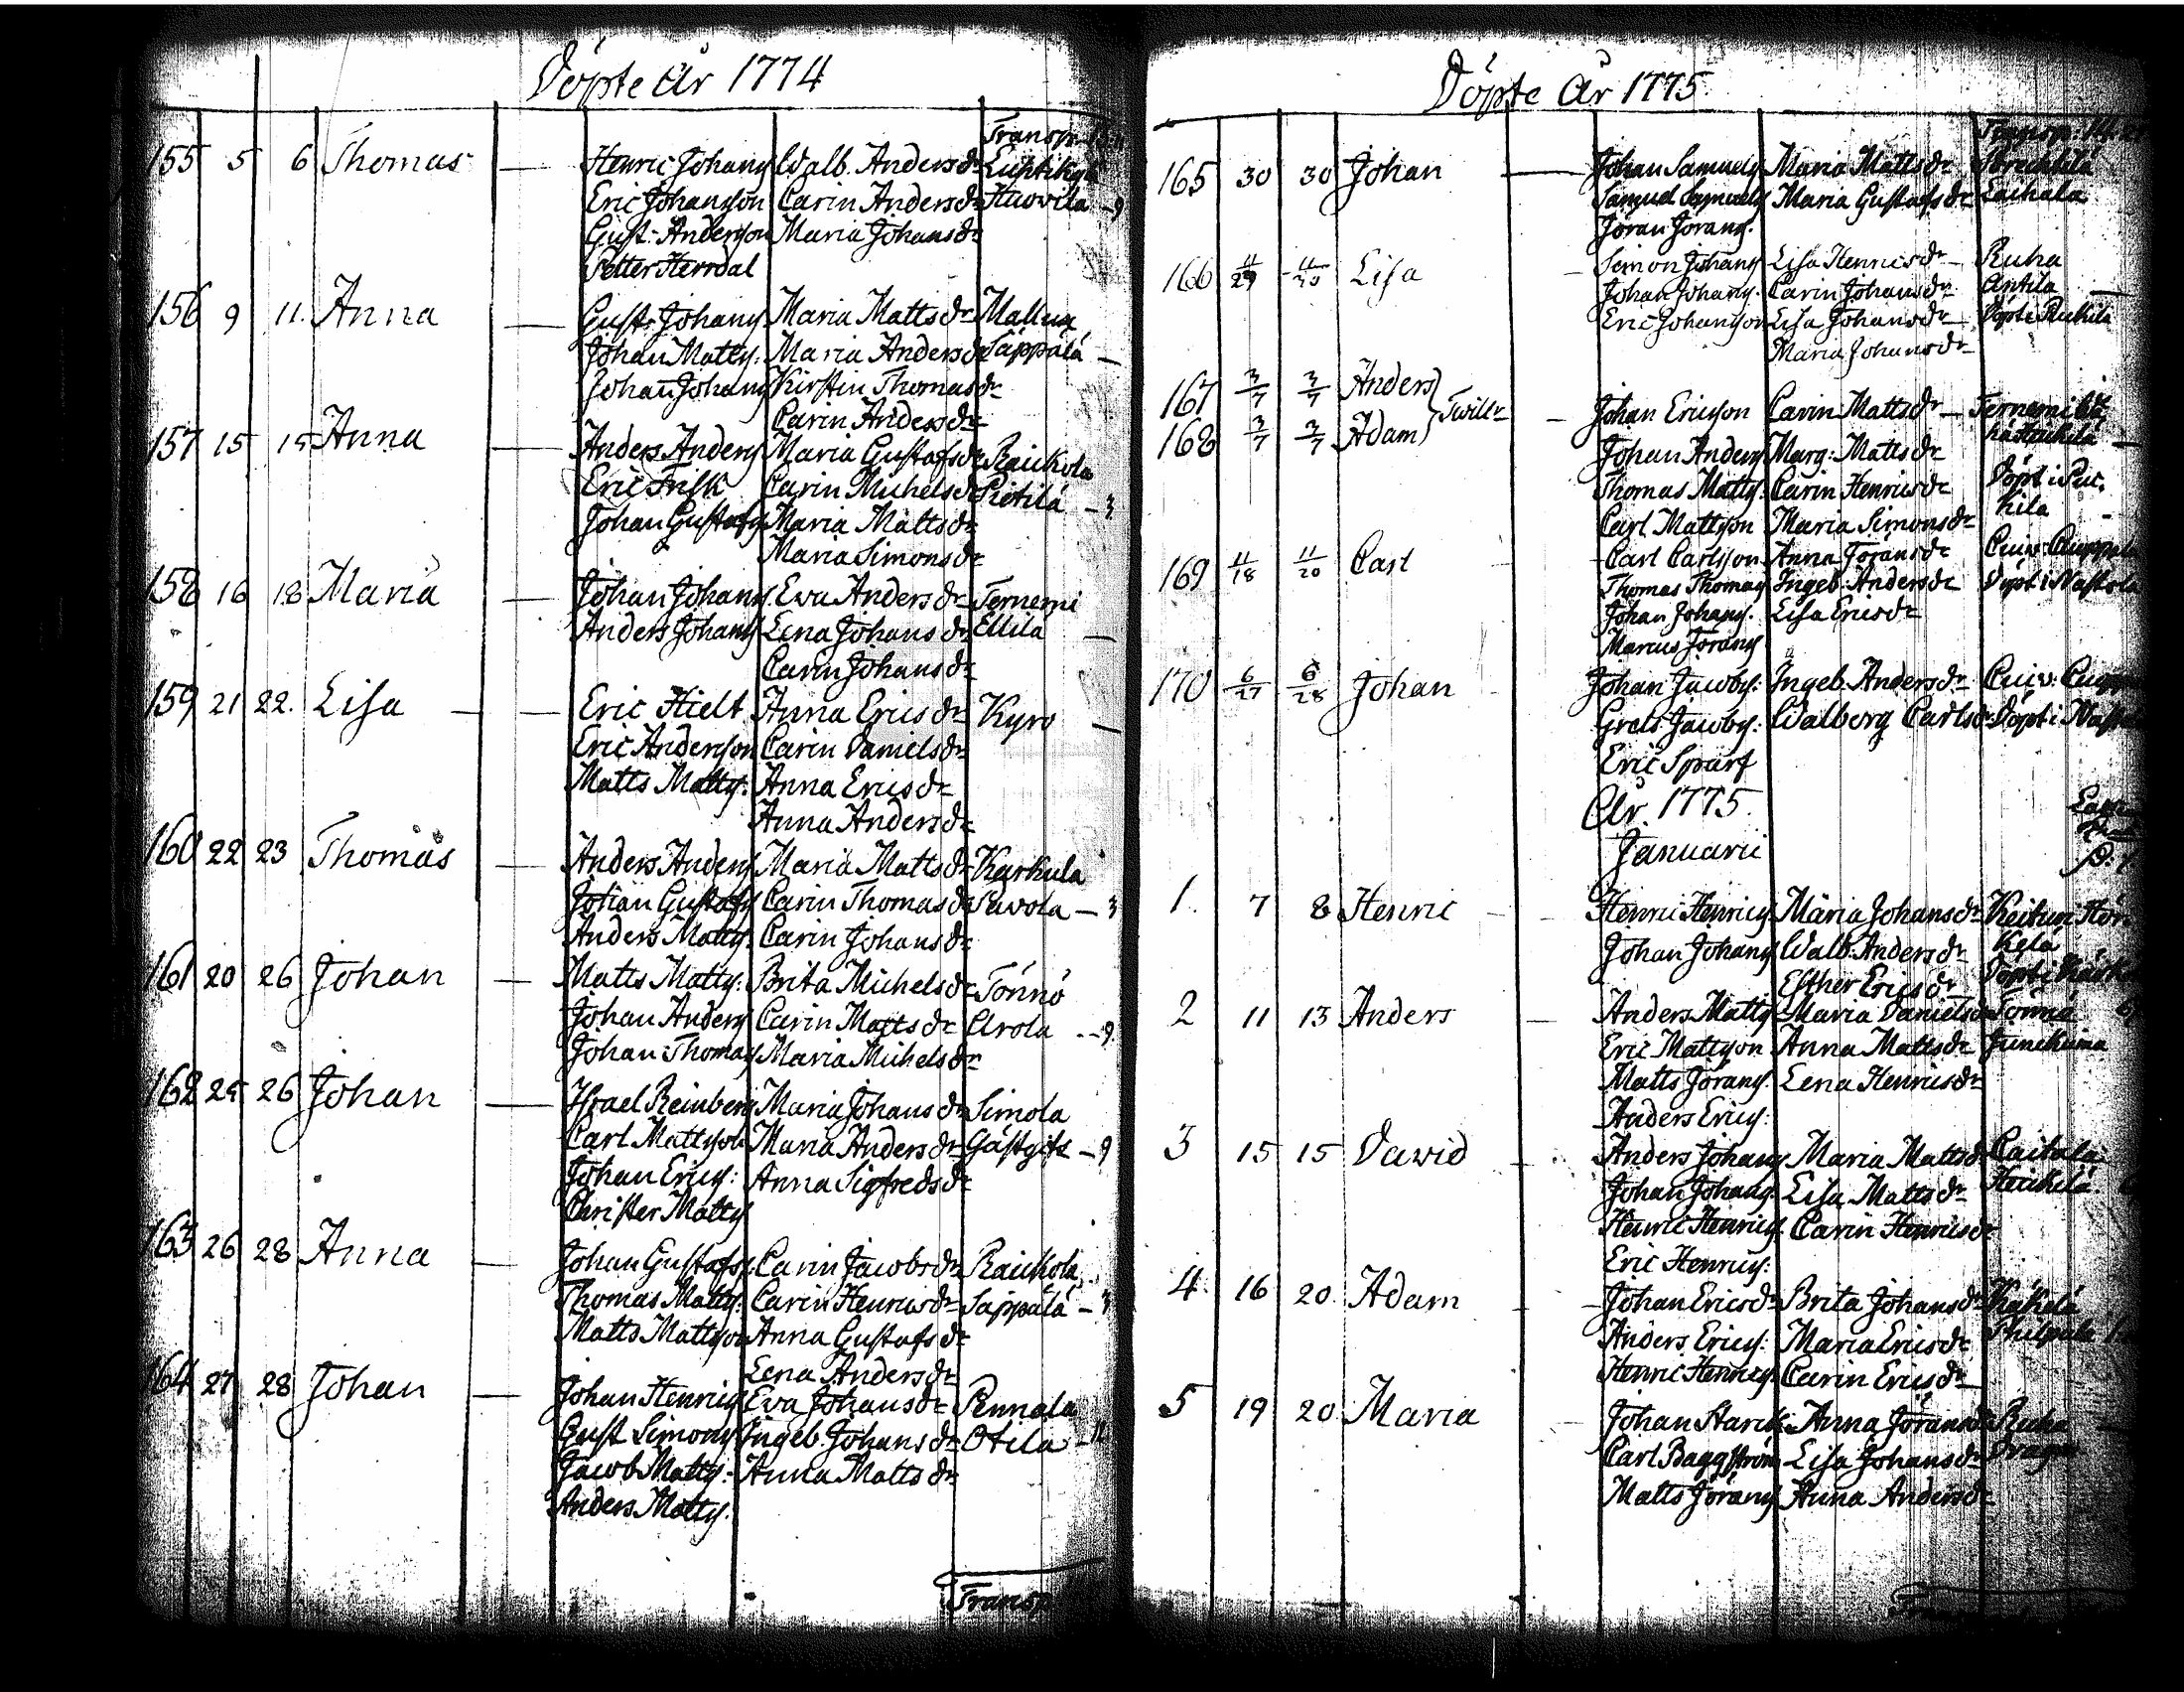 Döpte År 1774
Transp.
155 5 6 Thomas — Henric Johans Walb. Andersdr
Eric Johansson Carin Andersdr Huovila - 9
Gust. Andersson Maria Johansdr
Petter Herrdal
156 9 11. Anna — Gust. Johans Maria Mattsdr
Johan Matts: Maria Andersdr Säppälä —
Johan Johans Kirstin Thomasdr
Carin Andersdr
157 15 15 Anna — Anders Anders Maria Gustafsdr Raickola
Eric Frisk Carin Michelsdr Pietilä - 3
Johan Gustafs Maria Mattsdr
Maria Simonsdr
158 16 18 Maria — Johan Johans. Eva Andersdr Ternemi
Anders Johans Lena Johansdr Ellilä —
Carin Johansdr
159 21 22. Lisa — Eric Hielt Anna Ericsdr Kyro —
Eric Andersson Carin Danielsdr
Matts Matts. Anna Ericsdr
Anna Andersdr
160 22 23 Thomas — Anders Anders Maria Mattsdr Karkula
Johan Gustafs Carin Thomasdr Savola - 3
Anders Matts. Carin Johansdr
161 20 26 Johan — Matts Matts: Brita Michelsdr Tönnö
Johan Anders Carin Mattsdr Arola - 9
Johan Thomas Maria Michelsdr
162 25 26 Johan — Israel Reinberg Maria Johansdr Simola
Carl Mattsson Maria Andersdr Gästgifs - 9
Johan Erics: Anna Sigfredsdr
Christer Matts
163 26 28 Anna — Johan Gustafs. Carin Jacobsdr Raickola
Thomas Matts: Carin Henricsdr Säppälä - 3
Matts Mattsson Anna Gustafsdr
Lena Andersdr
164 27 28 Johan — Johan Henrics Eva Johansdr Pennala
Gust Simons Ingeb. Johansdr Otila
Jacob Matts: Anna Mattsdr
Anders Matts.
Transp
Döpte År 1775
165 30 30 Johan — Johan Samuels Maria Mattsdr
Samuel Samuels Maria Gustafsdr Laihala
Jöran Jörans.
166 11/29 Lisa — Simon Johans Lisa Henricsdr Ruha
Johan Johans. Carin Johansdr Antila —
Eric Johansson Lisa Johansdr Döpt i
Maria Johansdr
167 3/7 3/7 Anders
168 3/7 3/7 Adam Twill: — Johan Ericsson Carin Mattsdr —
Johan Anders Marg: Mattsdr
Thomas Matts. Carin Henricsdr Döpt i Puc.
Carl Mattsson Maria Simonsdr kila
169 11/18 11/20 Carl Carl Carlsson Anna Jöransdr
Thomas Thomas Ingeb: Andersdr Döpt i
Johan Johans. Lisa Ericsdr
Marcus Jörans
170 6/27 6/28 Johan Johan Jacobs: Ingeb. Andersdr
Grels Jacobs: Walborg Carlsdr Döpt i
Eric Sparf
År. 1775
Januarii
1. 7 8 Henric Henric Henrics. Maria Johansdr
Johan Johans Walb. Andersdr
Esther Ericsdr Döpt i
2 11 13 Anders — Anders Matts Maria Danielsdr
Eric Mattsson Anna Mattsdr
Matts Jörans. Lena Henricsdr
Anders Erics:
3 15 15 David Anders Johans Maria Mattsdr
Johan Johans. Lisa Mattsdr Heickilä
Henric Henrics. Carin Henricsdr
Eric Henrics:
4. 16 20. Adam Johan Ericsdr Brita Johansdr
Anders Erics: Maria Ericsdr
Henric Henrics. Carin Ericsdr
5 19 20 Maria Johan Starck Anna Jöransdr Ruha
Carl Baggström Lisa Johansdr
Matts Jörans. Anna Andersdr